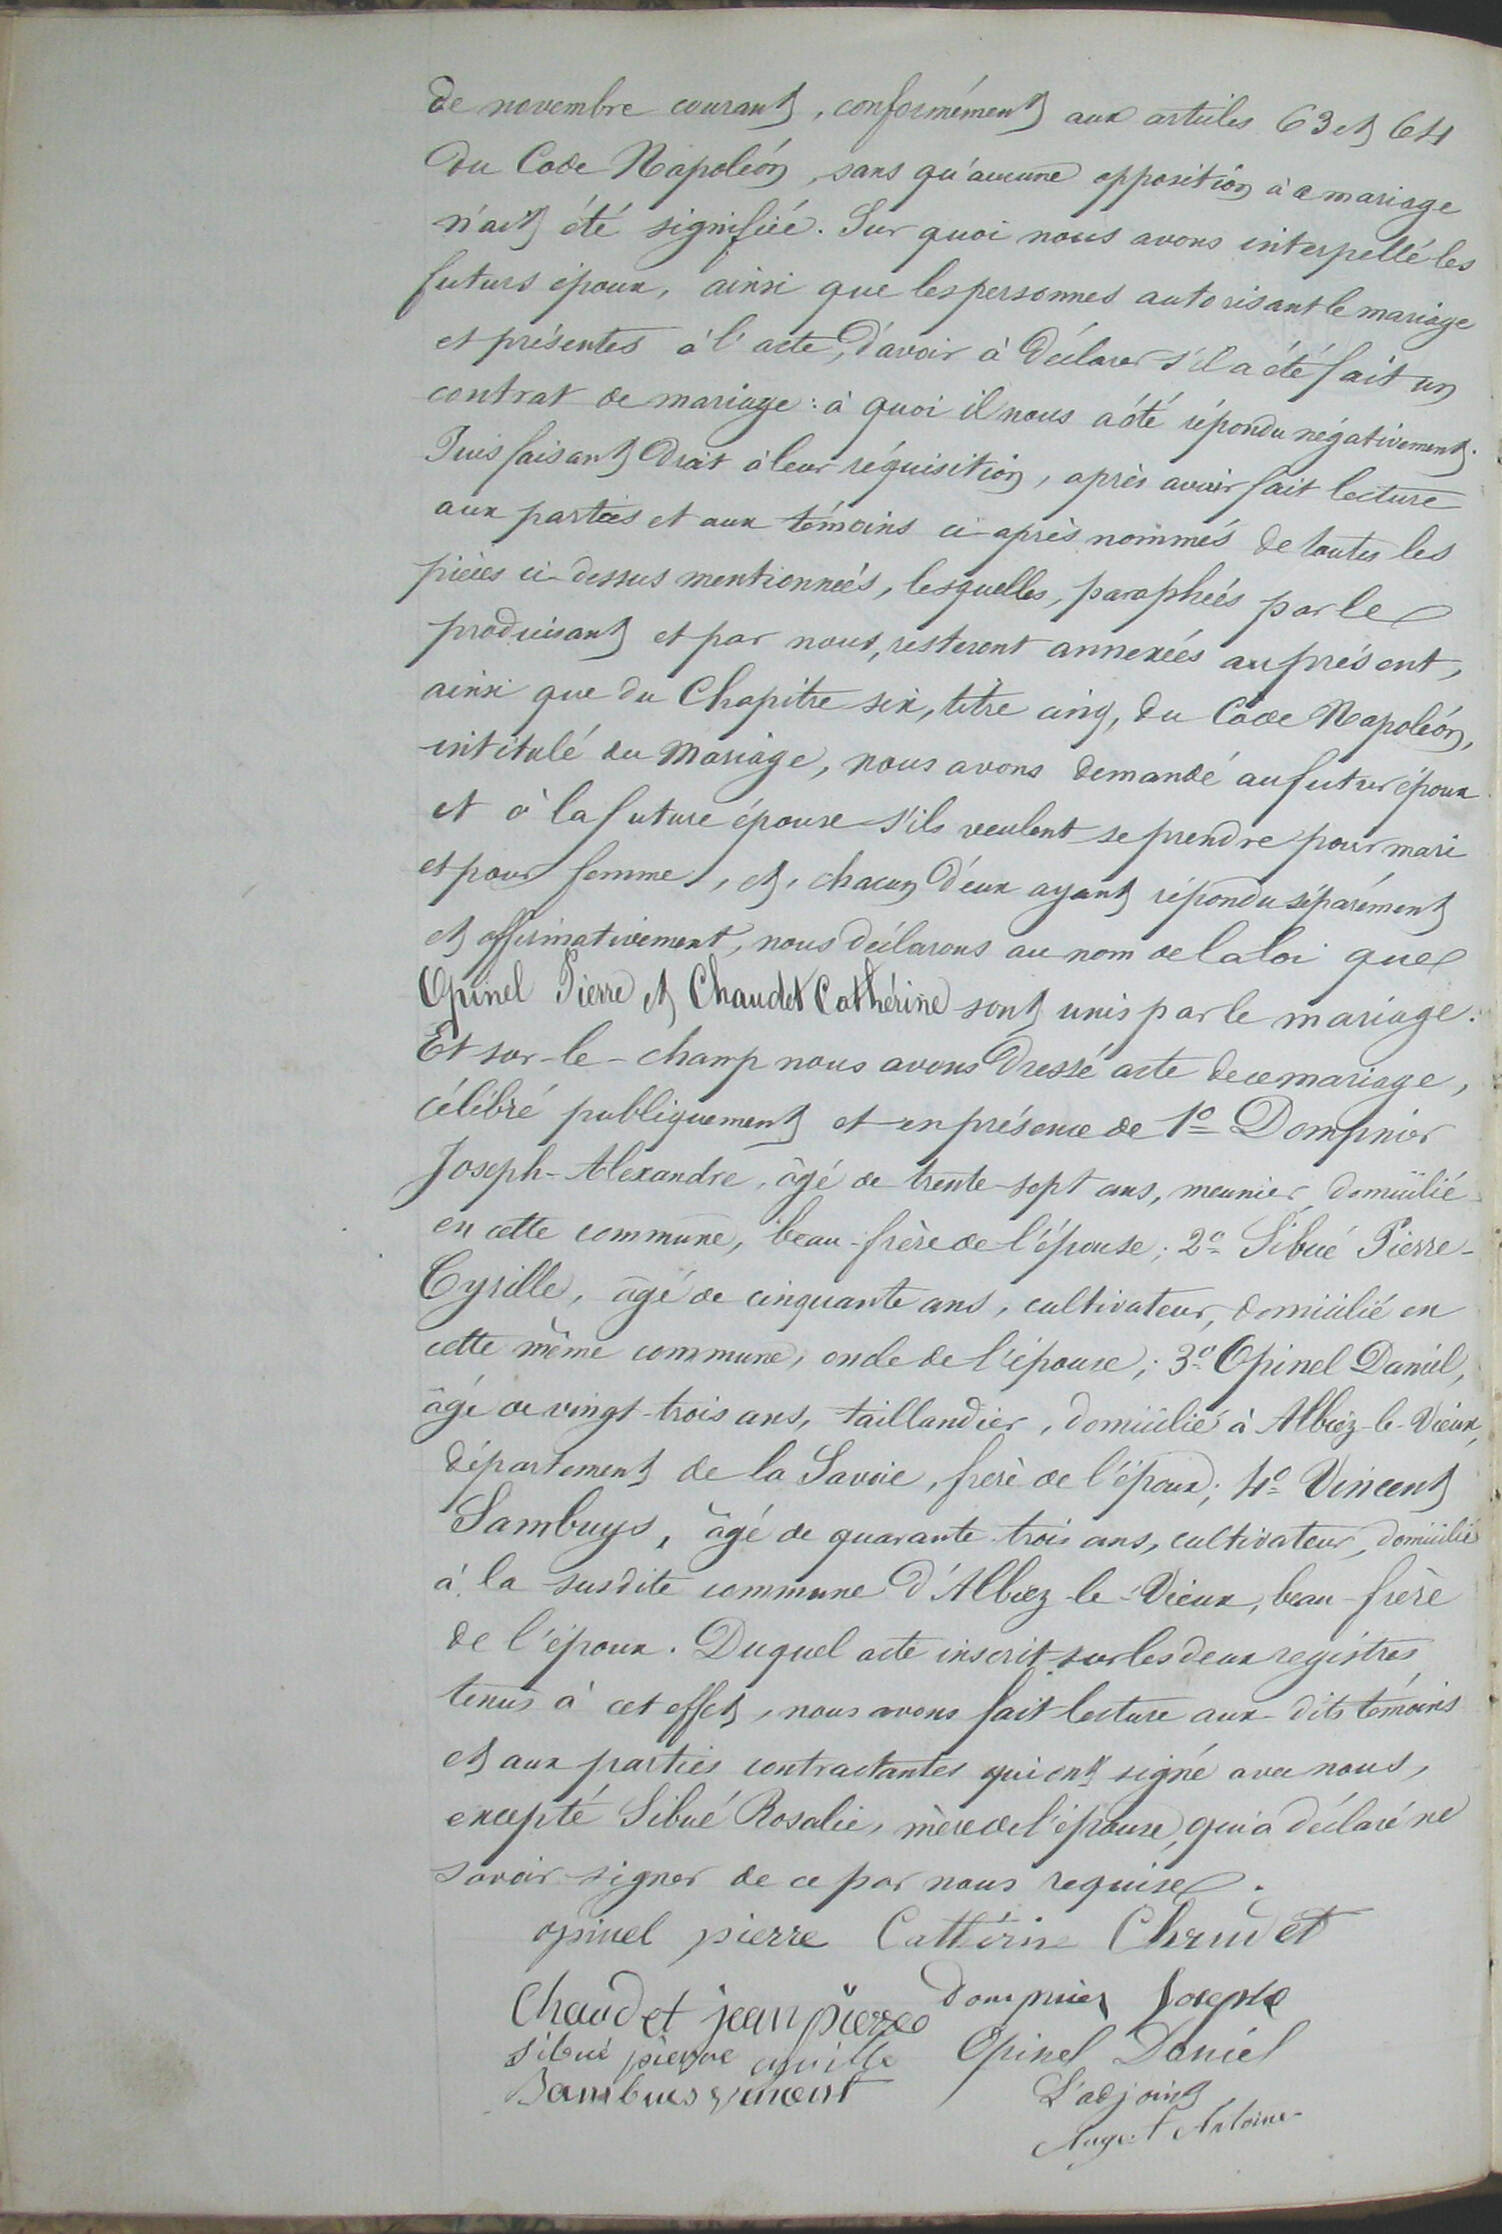 de novembre courant, conformément aux articles 63 et 64
du Code Napoléon, sans qu'aucune opposition à ce mariage
n'ait été signifiée. Sur quoi nous avons interpellé les
futurs époux, ainsi que les personnes autorisant le mariage
et présentes à l'acte, d'avoir à déclarer s'il a été fait un
contrat de mariage : à quoi il nous a été répondu négativement.
Puis faisant droit à leur réquisition, après avoir fait lecture
aux parties et aux témoins ci-après nommés de toutes les
pièces ci-dessus mentionnées, lesquelles, paraphées par le
produisant et par nous, resteront annexées au présent,
ainsi que du Chapitre six, titre cinq, du Code Napoléon,
intitulé du Mariage, nous avons demandé au futur époux
et à la future épouse s'ils veulent se prendre pour mari
et pour femme, et, chacun d'eux ayant répondu séparément
et affirmativement, nous déclarons au nom de la loi que
Opinel Pierre et Chaudet Cathérine sont unis par le mariage.
Et sur-le-champ nous avons dressé acte de ce mariage,
célébré publiquement et en présence de 1º Dompnier
Joseph-Alexandre, âgé de trente-sept ans, meunier, domicilié
en cette commune, beau-frère de l'épouse ; 2º Sibué Pierre-
Cyrille, âgé de cinquante ans, cultivateur, domicilié en
cette même commune, oncle de l'épouse ; 3º Opinel Daniel,
âgé de vingt-trois ans, taillandier, domicilié à Albiez-le-Vieux,
département de la Savoie, frère de l'époux ; 4º Vincent
Sambuys, âgé de quarante-trois ans, cultivateur, domicilié
à la susdite commune d'Albiez-le-Vieux, beau-frère
de l'époux. Duquel acte inscrit sur les deux registres
tenus à cet effet, nous avons fait lecture aux-dits témoins
et aux parties contractantes qui ont signé avec nous,
excepté Sibué Rosalie, mère de l'épouse, qui a déclaré ne
savoir signer de ce par nous requise.
opinel pierre Cathérine Chaudet
Chaudet jean pierre dompnier Joseph
sibué pierre cyrille Opinel Daniel
Sambuis vincent L'adjoint
Antoine